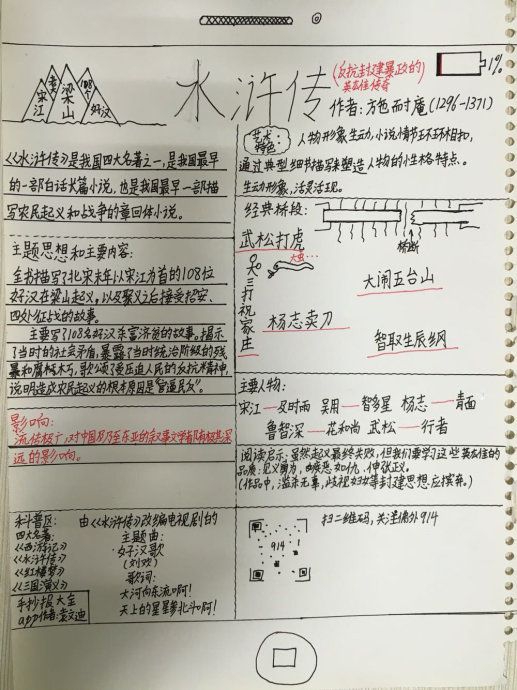 1%
水浒传
(反抗封建暴政的
英雄传奇)
作者:方色而寸庵(1296-1371)
宋江
梁山
108
好汉
《水浒传》是我国四大名著之一,是我国最早
的一部白话长篇小说,也是我国最早一部描
写农民起义和战争的章回体小说。
艺术特色
人物形象生动,小说情节环环相扣,
通过典型细节描写来塑造人物的小生格特点。
生动形象,活灵活现。
主题思想和主要内容:
全书描写了北宋末年以宋江为首的108位
好汉在梁山起义,以及聚义之后接受招安、
四处征战的故事。
主要写了108名好汉杀富济贫的故事。揭示
了当时的社会矛盾,暴露了当时统治阶级的残
暴和腐朽,歌颂了受压迫人民的反抗精神,
说明造成农民起义的根本原因是"官逼民反"。
经典桥段:
桥断
武松打虎
大虫…
三打祝家庄
大闹五台山
杨志卖刀
智取生辰纲
影响向:
流传极广,对中国乃至东亚的叙事文学都有极其深
远的影响。
主要人物:
宋江——及时雨 吴用——智多星 杨志——青面
鲁智深——花和尚 武松——行者
阅读启示:虽然起义最终失败,但我们要学习这些英雄的
品质:见义勇为,嫉恶如仇,伸张正义。
(作品中,滥杀无辜,歧视妇女等封建思想应摈弃。)
科普区:
四大名著:
《西游记》
《水浒传》
《红楼梦》
《三国演义》
手抄报大全
app作者:
由《水浒传》改编电视剧的
主题曲:
好汉歌
(刘欢)
歌词:
大河向东流啊!
天上的星星参北斗啊!
914
扫二维码,关注偶外914